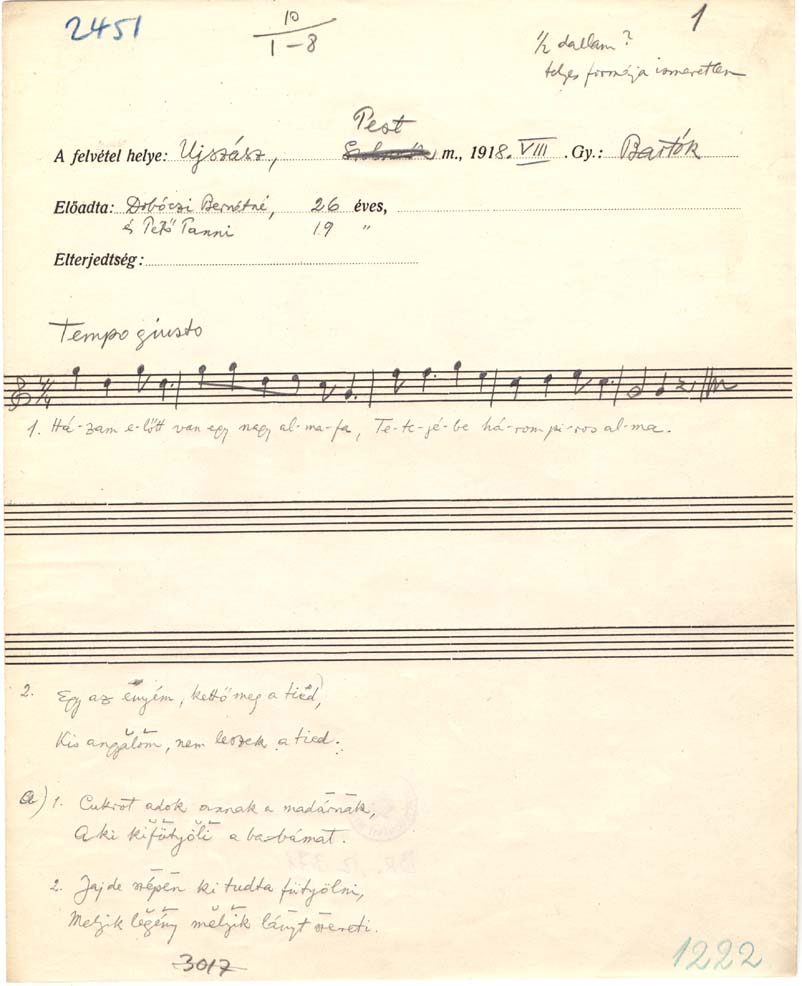 2451
10
1-8
1
1/2 dallam?
teljes formája ismeretlen
A felvétel helye: Ujszász, Pest m., 1918. VIII. Gy.: Bartók
Előadta: Dobóczi Bernátné, 26 éves,
és Pető Panni 19 "
Elterjedtség:
Tempo giusto
1. Há-zam e-lőtt van egy nagy al-ma-fa, Te-te-jé-be há-rom pi-ros al-ma.
2. Egy az enyém, kettő meg a tiéd,
Kis angalom, nem leszek a tied.
a) 1. Cukrot adok annak a madárnak,
Aki kifütyöli a babámat.
2. Jajde szépen ki tudta fütyölni,
Meljik legény meljik lányt szereti.
3017
1222